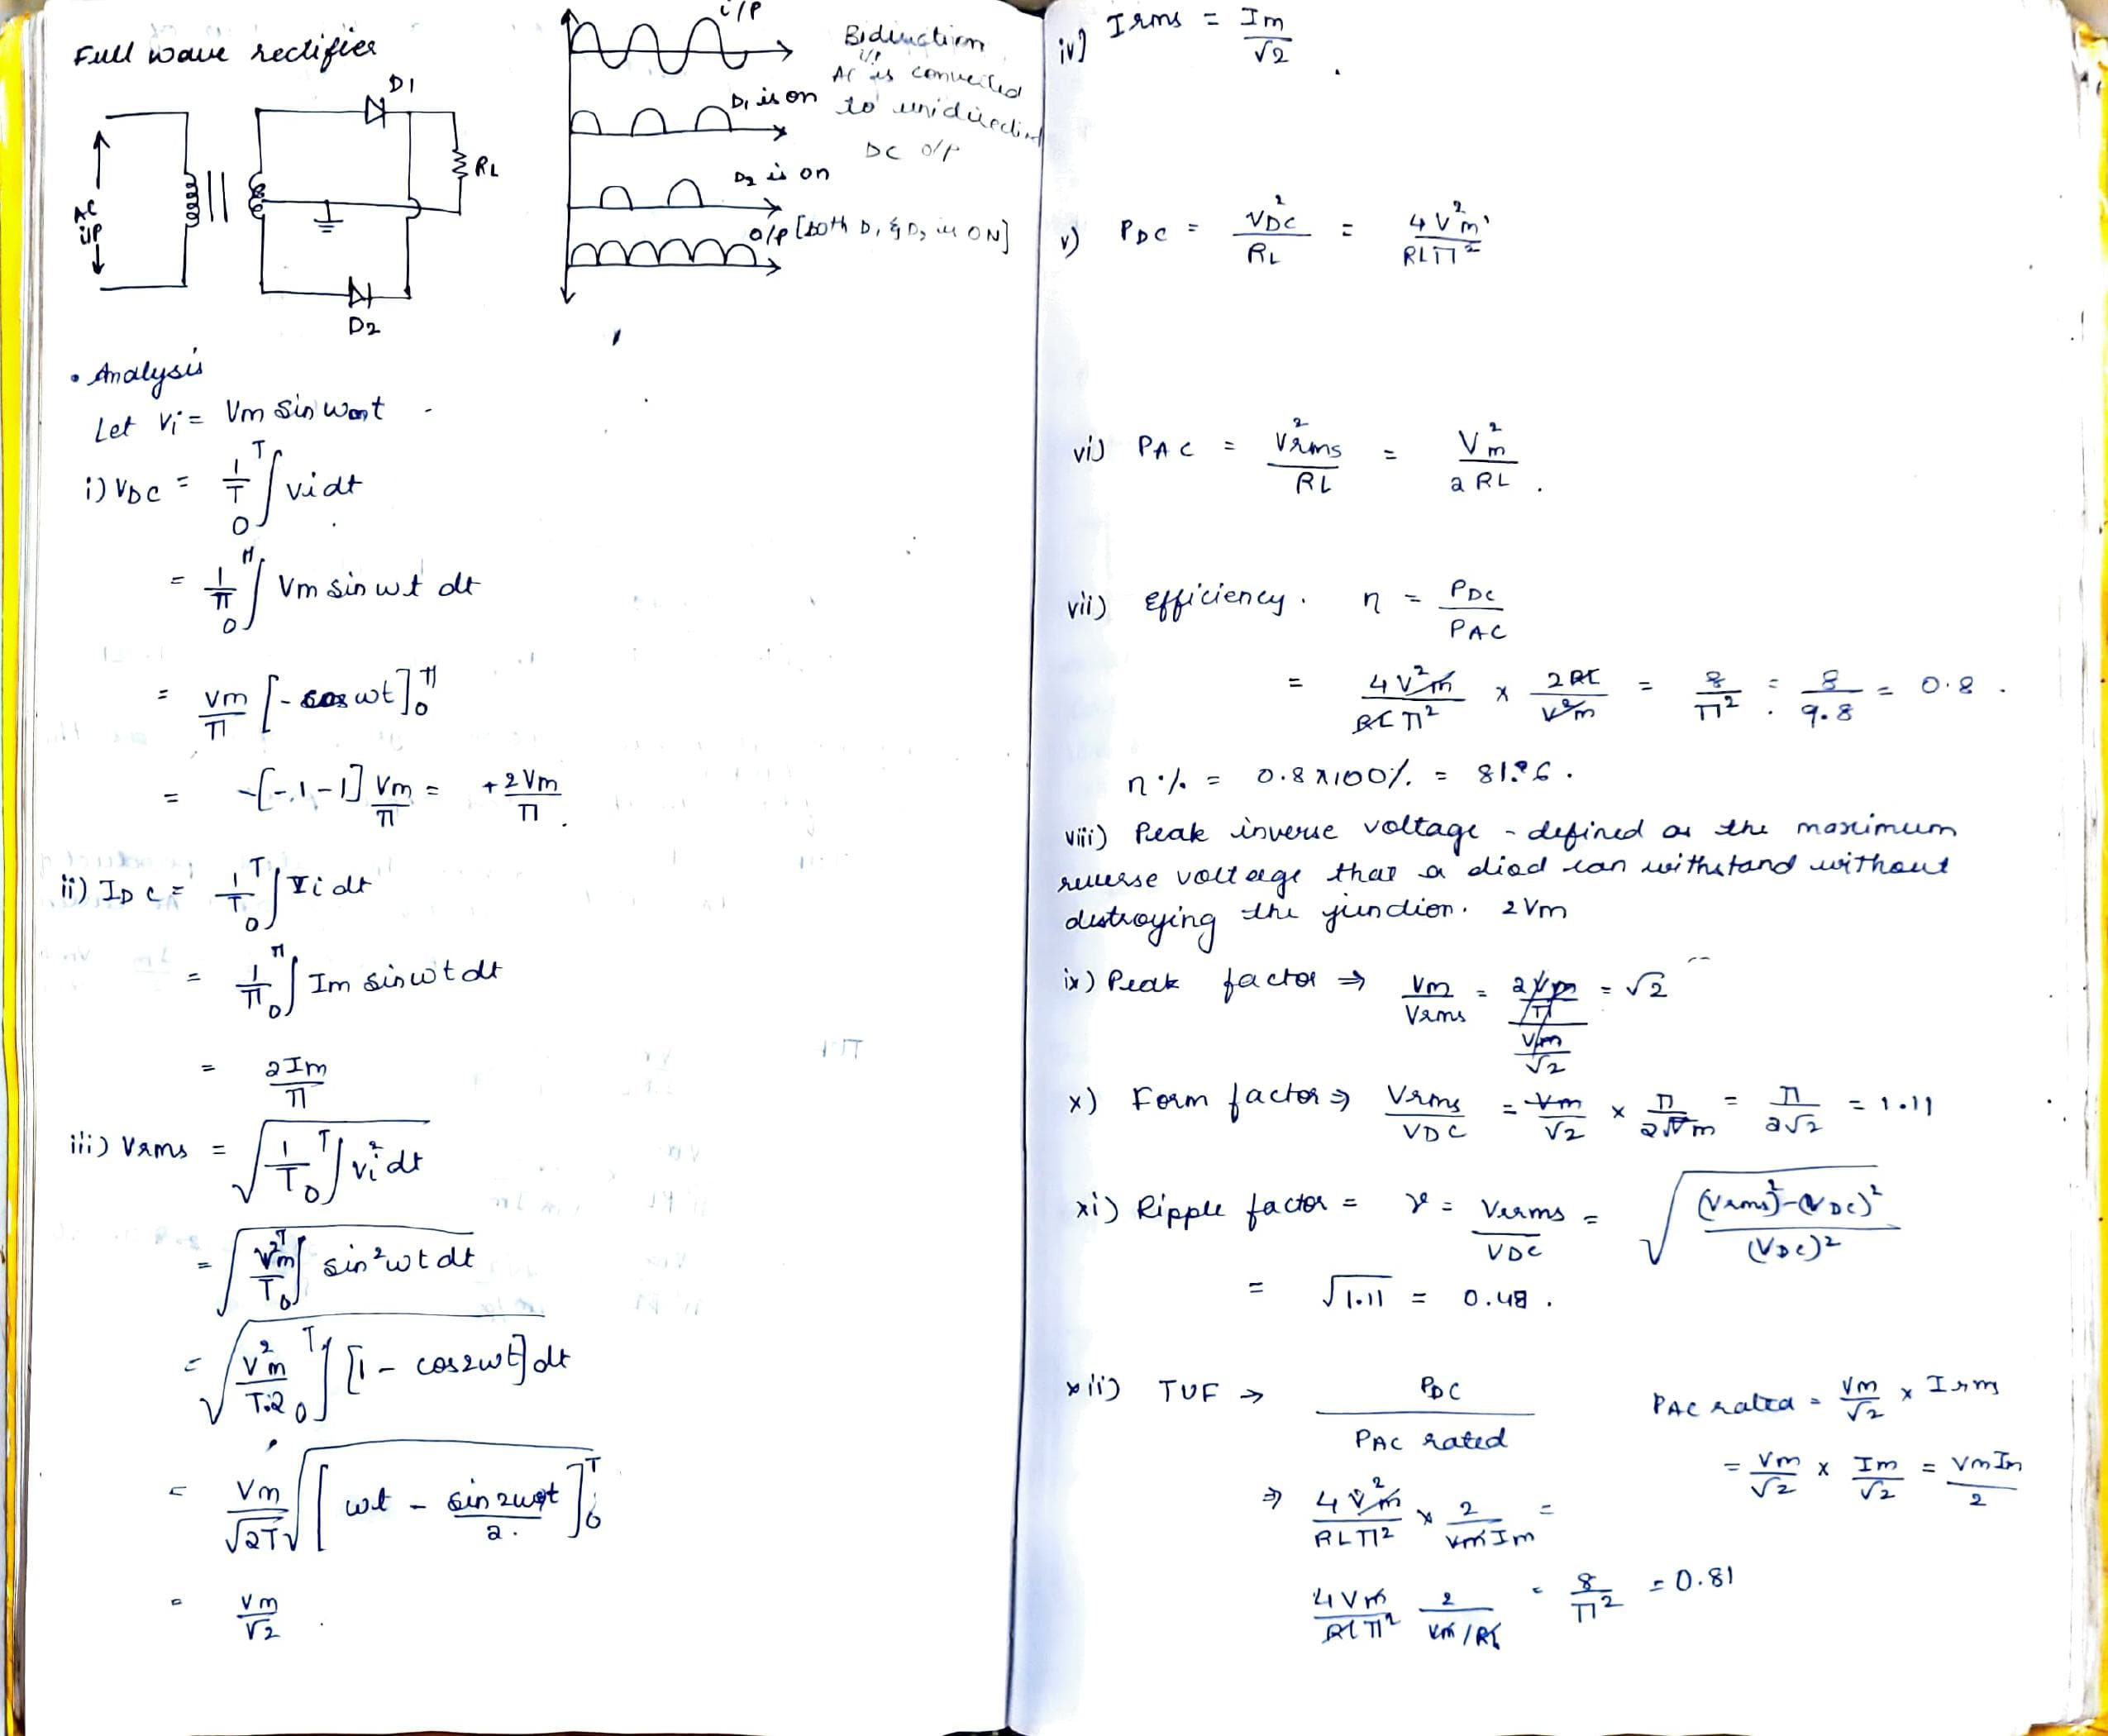 Full wave rectifier
D1
RL
AC
i/p
D2
i/p
D1 is on
D2 is on
o/p [both D1 & D2 is ON]
Bidirection
i/p
AC is converted
to unidirection
DC o/p
• Analysis
Let Vi = Vm sin wt
i) VDC = 1/T ∫₀ᵀ vi dt
= 1/π ∫₀^π Vm sin wt dt
= Vm/π [- cos wt]₀^π
= -[-1-1] Vm/π = +2Vm/π .
ii) IDC = 1/T ∫₀ᵀ Ii dt
= 1/π ∫₀^π Im sin wt dt
= 2Im/π
iii) Vrms = √(1/T ∫₀ᵀ vi² dt)
= √(V²m/T ∫₀ᵀ sin² wt dt)
= √(V²m/T.2 ∫₀ᵀ [1 - cos2wt] dt)
= Vm/√2T √([wt - sin 2wt/2.]₀ᵀ)
= Vm/√2 .
iv) Irms = Im/√2 .
v) PDC = V²DC/RL = 4V²m/RLπ²
vi) PAC = V²rms/RL = V²m/2RL .
vii) Efficiency. η = PDC/PAC
= 4V²m/RLπ² x 2RL/V²m = 8/π² = 8/9.8 = 0.8 .
η % = 0.8 x 100% = 81.%.
viii) Peak inverse voltage - defined as the maximum
reverse voltage that a diod can withstand without
distroying the junction. 2Vm
ix) Peak factor ⇒ Vm/Vrms = (2Vm/π)/(Vm/√2) = √2
x) Form factor ⇒ Vrms/VDC = Vm/√2 x π/2Vm = π/2√2 = 1.11
xi) Ripple factor = γ = Vrrms/VDC = √((Vrms)²-(VDC)²/(VDC)²)
= √1.11 = 0.48 .
xii) TUF → PDC/PAC rated
PAC rated = Vm/√2 x Irms
= Vm/√2 x Im/√2 = VmIm/2
⇒ 4V²m/RLπ² x 2/VmIm =
4Vm/RLπ² 2/Vm/RL = 8/π² = 0.81